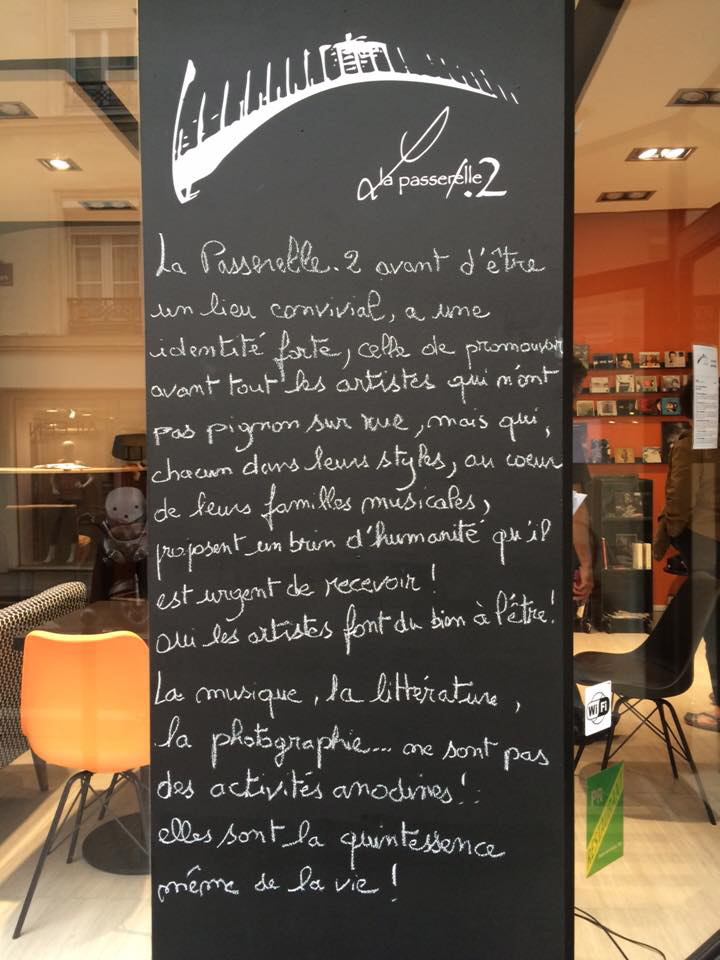 la passerelle.2
La Passerelle.2 avant d'être
un lieu convivial, a une
identité forte, celle de promouvoir
avant tout les artistes qui n'ont
pas pignon sur rue, mais qui,
chacun dans leurs styles, au coeur
de leurs familles musicales,
proposent un brin d'humanité qu'il
est urgent de recevoir !
oui les artistes font du bien à l'être !
La musique, la littérature,
la photographie... ne sont pas
des activités anodines !
elles sont la quintessence
même de la vie !
WiFi